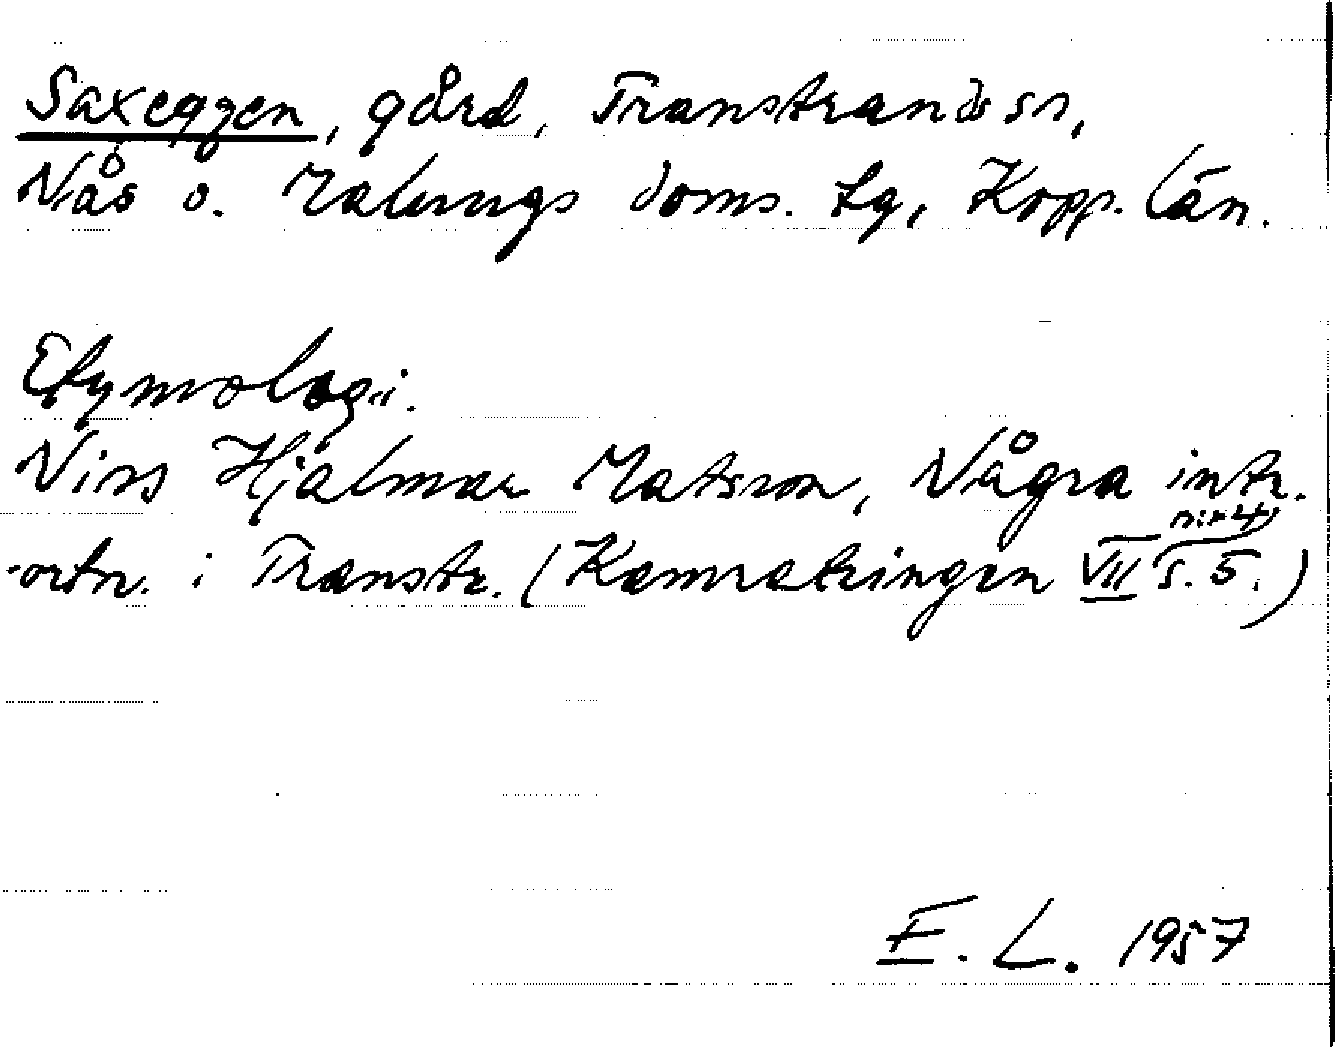 Saxeggen, gård, Transtrands sn,
Nås o. Malungs doms. tg, Kopp. län.
Etymologi.
Nils Hjalmar Matsson, Några intr.
nr 4,
-ortn. i Transtr. (Kamratringen VII s. 5.)
E. L. 1957